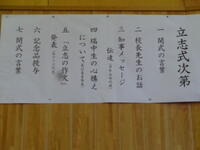 立志式次第
一 開式の言葉
二 校長先生のお話
三 知事メッセージ
伝達
四 塙中生の心構え
について
五 「立志の作文」
発表
六 記念品授与
七 閉式の言葉